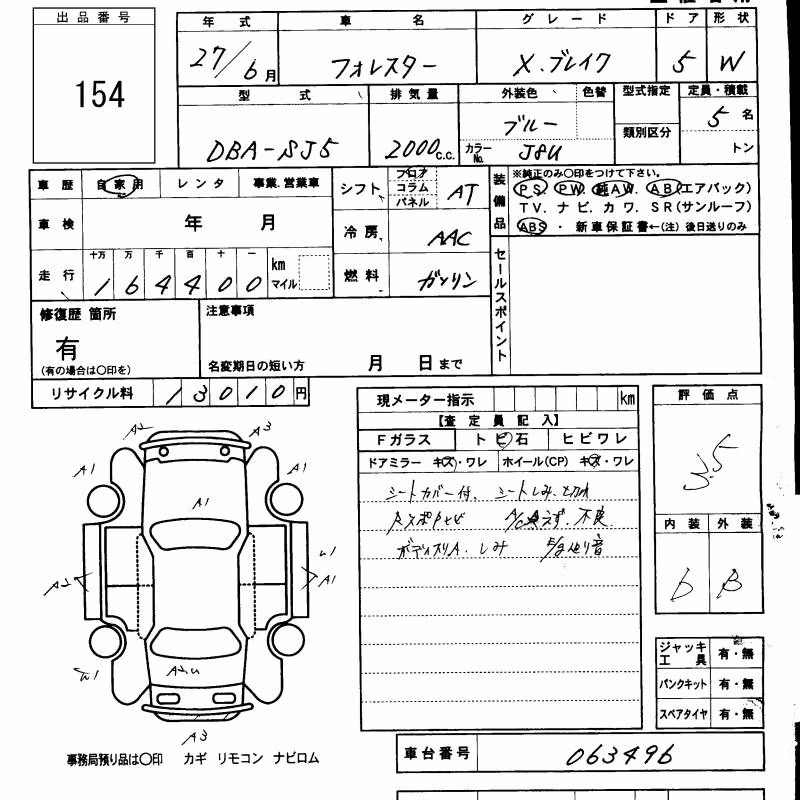 出品番号
154
年式 車名 グレード ドア 形状
27/6月 フォレスター X.ブレイク 5 W
型式 排気量 外装色 色替 型式指定 定員・積載
DBA-SJ5 2000c.c. ブルー 5名
カラーNo. J8U 類別区分 トン
車歴 自家用 レンタ 事業.営業車
車検 年 月
十万 万 千 百 十 一
走行 164400 km マイル
シフト フロア コラム パネル AT
冷房 AAC
燃料 ガソリン
装備品
※純正のみ〇印をつけて下さい。
PS PW. 純AW. AB(エアバック)
TV.ナビ.カワ.SR(サンルーフ)
ABS ・ 新車保証書←(注)後日送りのみ
セールスポイント
修復歴 箇所
有
(有の場合は〇印を)
注意事項
名変期日の短い方 月 日まで
リサイクル料 13010円
現メーター指示 km
【査定員記入】
Fガラス トビ石 ヒビワレ
ドアミラー キズ・ワレ ホイール(CP) キズ・ワレ
シートカバー付、シートしみ、
不良
しみ 音
評価点
3.5
内装 外装
b B
A2 A3
A1 A1
A1
A2 A1
A2.u
A3
ジャッキ工具 有・無
パンクキット 有・無
スペアタイヤ 有・無
事務局預り品は〇印 カギ リモコン ナビロム
車台番号 063496